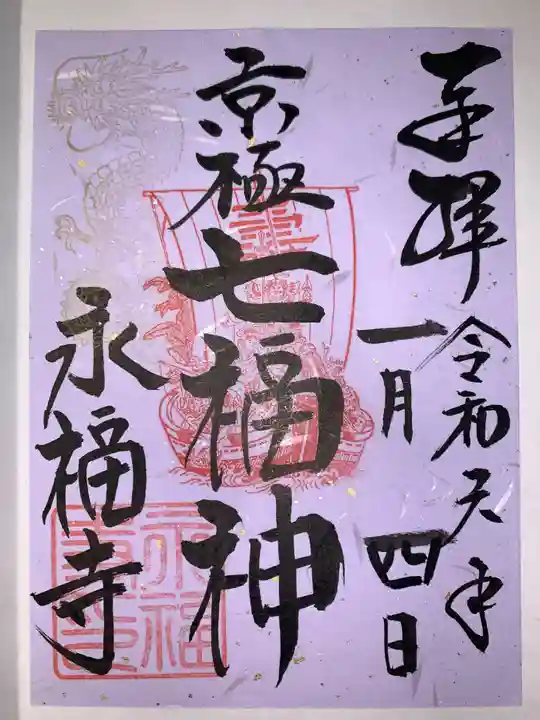 奉拝
令和六年
一月四日
京極七福神
永福寺
永福
寺印